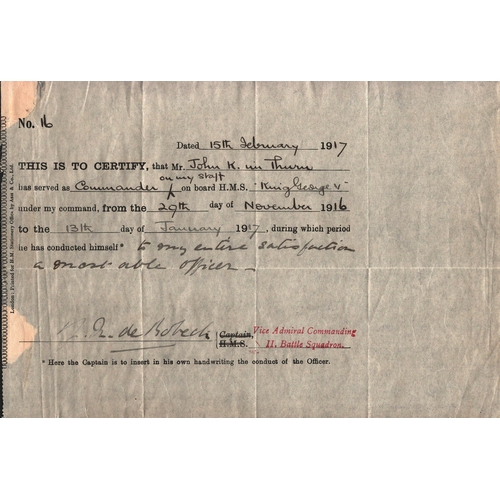 No. 16
Dated 15th February 1917
THIS IS TO CERTIFY, that Mr. John K. im Thurn
on my staff
has served as Commander on board H.M.S. "King George V"
under my command, from the 29th day of November 1916
to the 13th day of January 1917, during which period
he has conducted himself* to my entire satisfaction
a most able officer —
de Robeck
Captain, Vice Admiral Commanding
H.M.S. II. Battle Squadron.
* Here the Captain is to insert in his own handwriting the conduct of the Officer.
London: Printed for H.M. Stationery Office by & Co., Ltd.